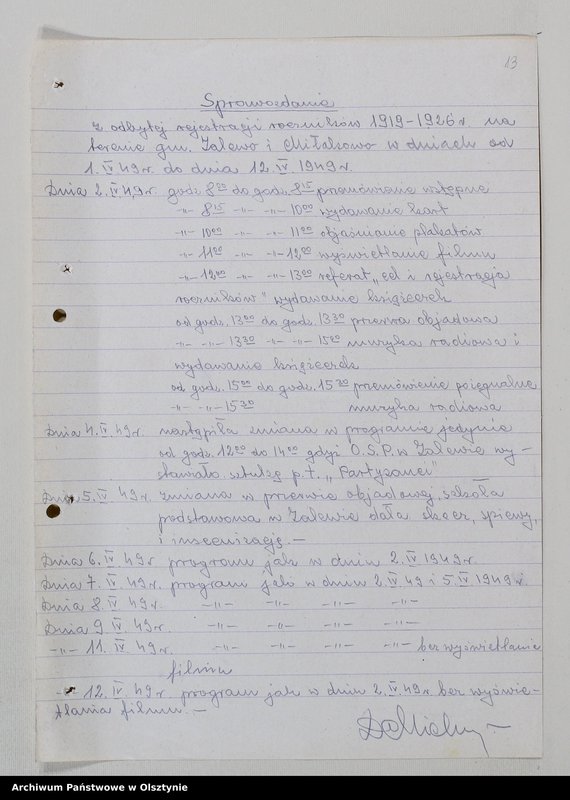 13
Sprawozdanie
z odbytej rejestracji roczników 1919-1926 r. na
terenie gm. Zalewo i Miłakowo w dniach od
1.IV 49 r. do dnia 12.IV 1949 r.
Dnia 2.IV.49 r. godz. 8⁰⁰ do godz. 8¹⁵ przemówienie wstępne
-"- 8¹⁵ -"- -"- 10⁰⁰ wydawanie kart
-"- 10⁰⁰ -"- -"- 11⁰⁰ objaśnianie plakatów
-"- 11⁰⁰ -"- -"- 12⁰⁰ wyświetlanie filmu
-"- 12⁰⁰ -"- -"- 13⁰⁰ referat „cel i rejestracja
roczników" wydawanie książeczek
od godz. 13⁰⁰ do godz. 13³⁰ przerwa objadowa
-"- -"- 13³⁰ -"- -"- 15⁰⁰ muzyka radiowa i
wydawanie książeczek
od godz. 15⁰⁰ do godz. 15³⁰ przemówienie pożegnalne
-"- -"- 15³⁰ muzyka radiowa
Dnia 4.IV.49 r. nastąpiła zmiana w programie jedynie
od godz. 12⁰⁰ do 14⁰⁰ gdyż O.S.P. w Zalewie wy-
stawiało sztukę p.t. „Partyzanci"
Dnia 5.IV 49 r. zmiana w przerwie objadowej, szkoła
podstawowa w Zalewie dała skecz, śpiewy,
i inscenizację. -
Dnia 6.IV 49 r. program jak w dniu 2.IV 1949 r.
Dnia 7.IV 49 r. program jak w dniu 2.IV 49 i 5.IV 1949 r.
Dnia 8.IV 49 r. -"- -"- -"- -"-
Dnia 9 IV 49 r. -"- -"- -"- -"-
-"- 11.IV 49 r. -"- -"- -"- -"- bez wyświetlania
filmu
-"- 12.IV 49 r. program jak w dniu 2.IV 49 r. bez wyświe-
tlania filmu. -
Archiwum Państwowe w Olsztynie